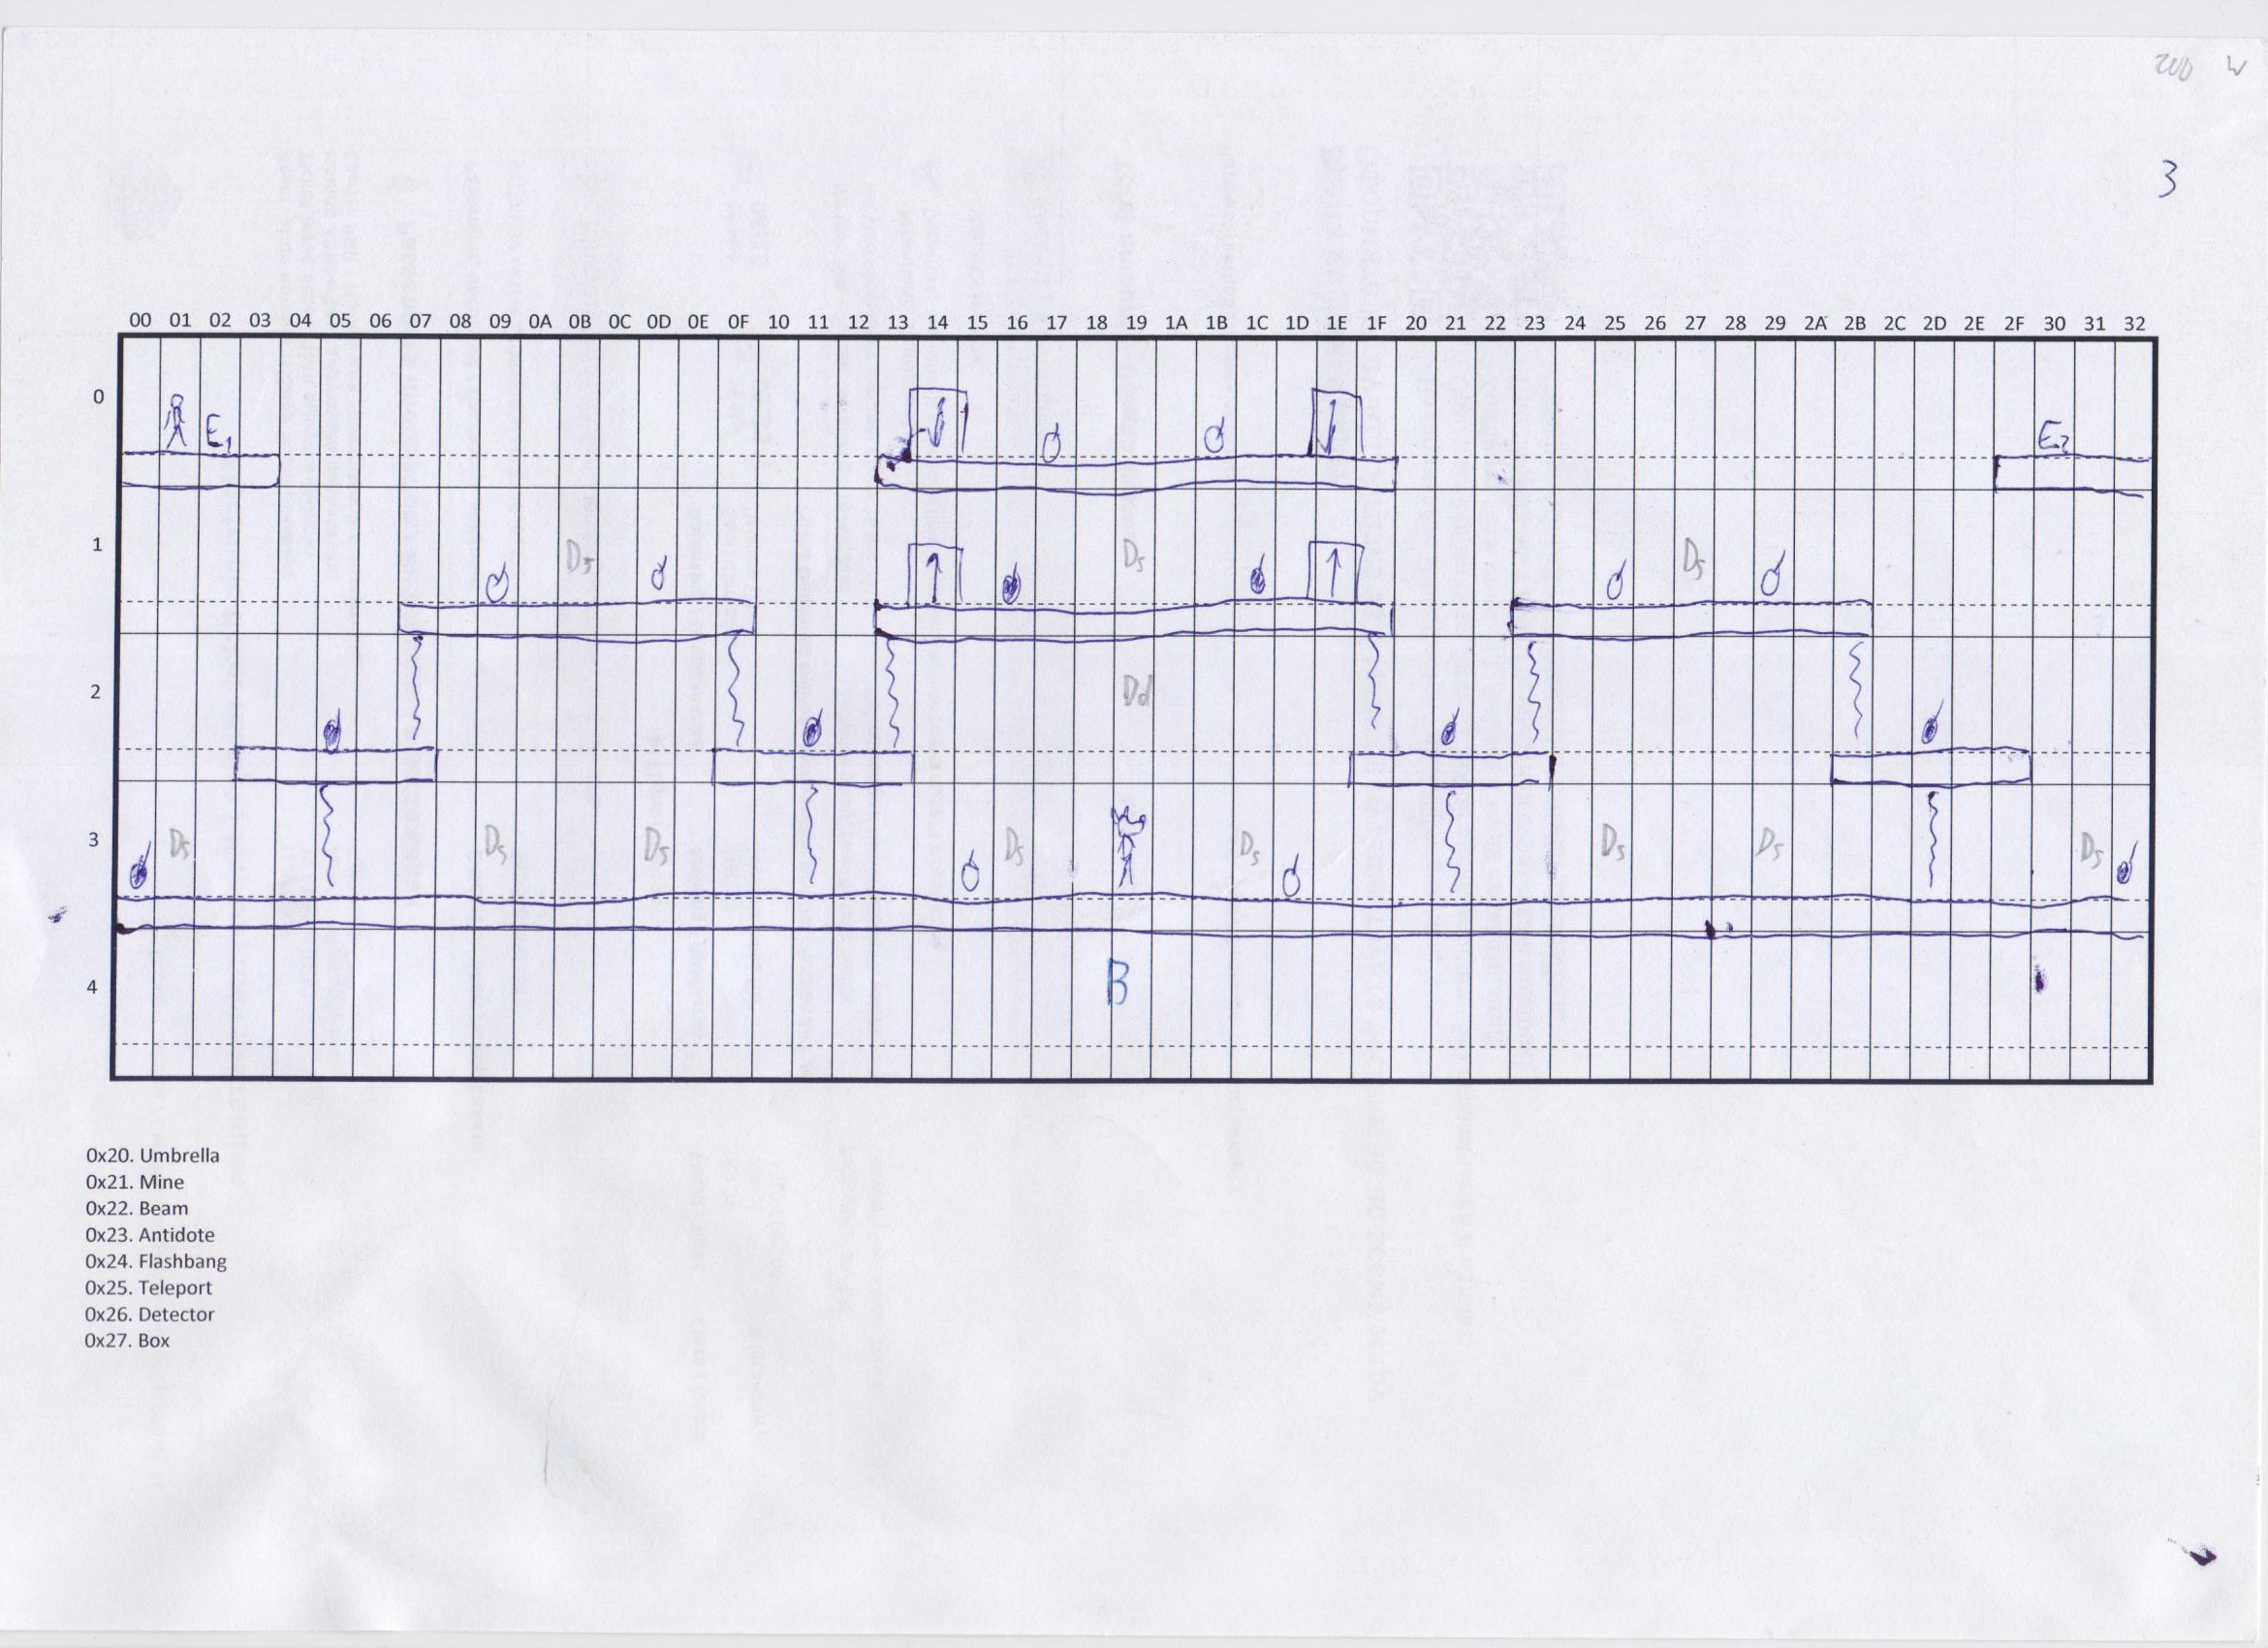 200 W
3
00 01 02 03 04 05 06 07 08 09 0A 0B 0C 0D 0E 0F 10 11 12 13 14 15 16 17 18 19 1A 1B 1C 1D 1E 1F 20 21 22 23 24 25 26 27 28 29 2A 2B 2C 2D 2E 2F 30 31 32
0
E1 E2
1
Ds Ds Ds
2
Dd
3
Ds Ds Ds Ds Ds Ds Ds Ds
4
B
0x20. Umbrella
0x21. Mine
0x22. Beam
0x23. Antidote
0x24. Flashbang
0x25. Teleport
0x26. Detector
0x27. Box